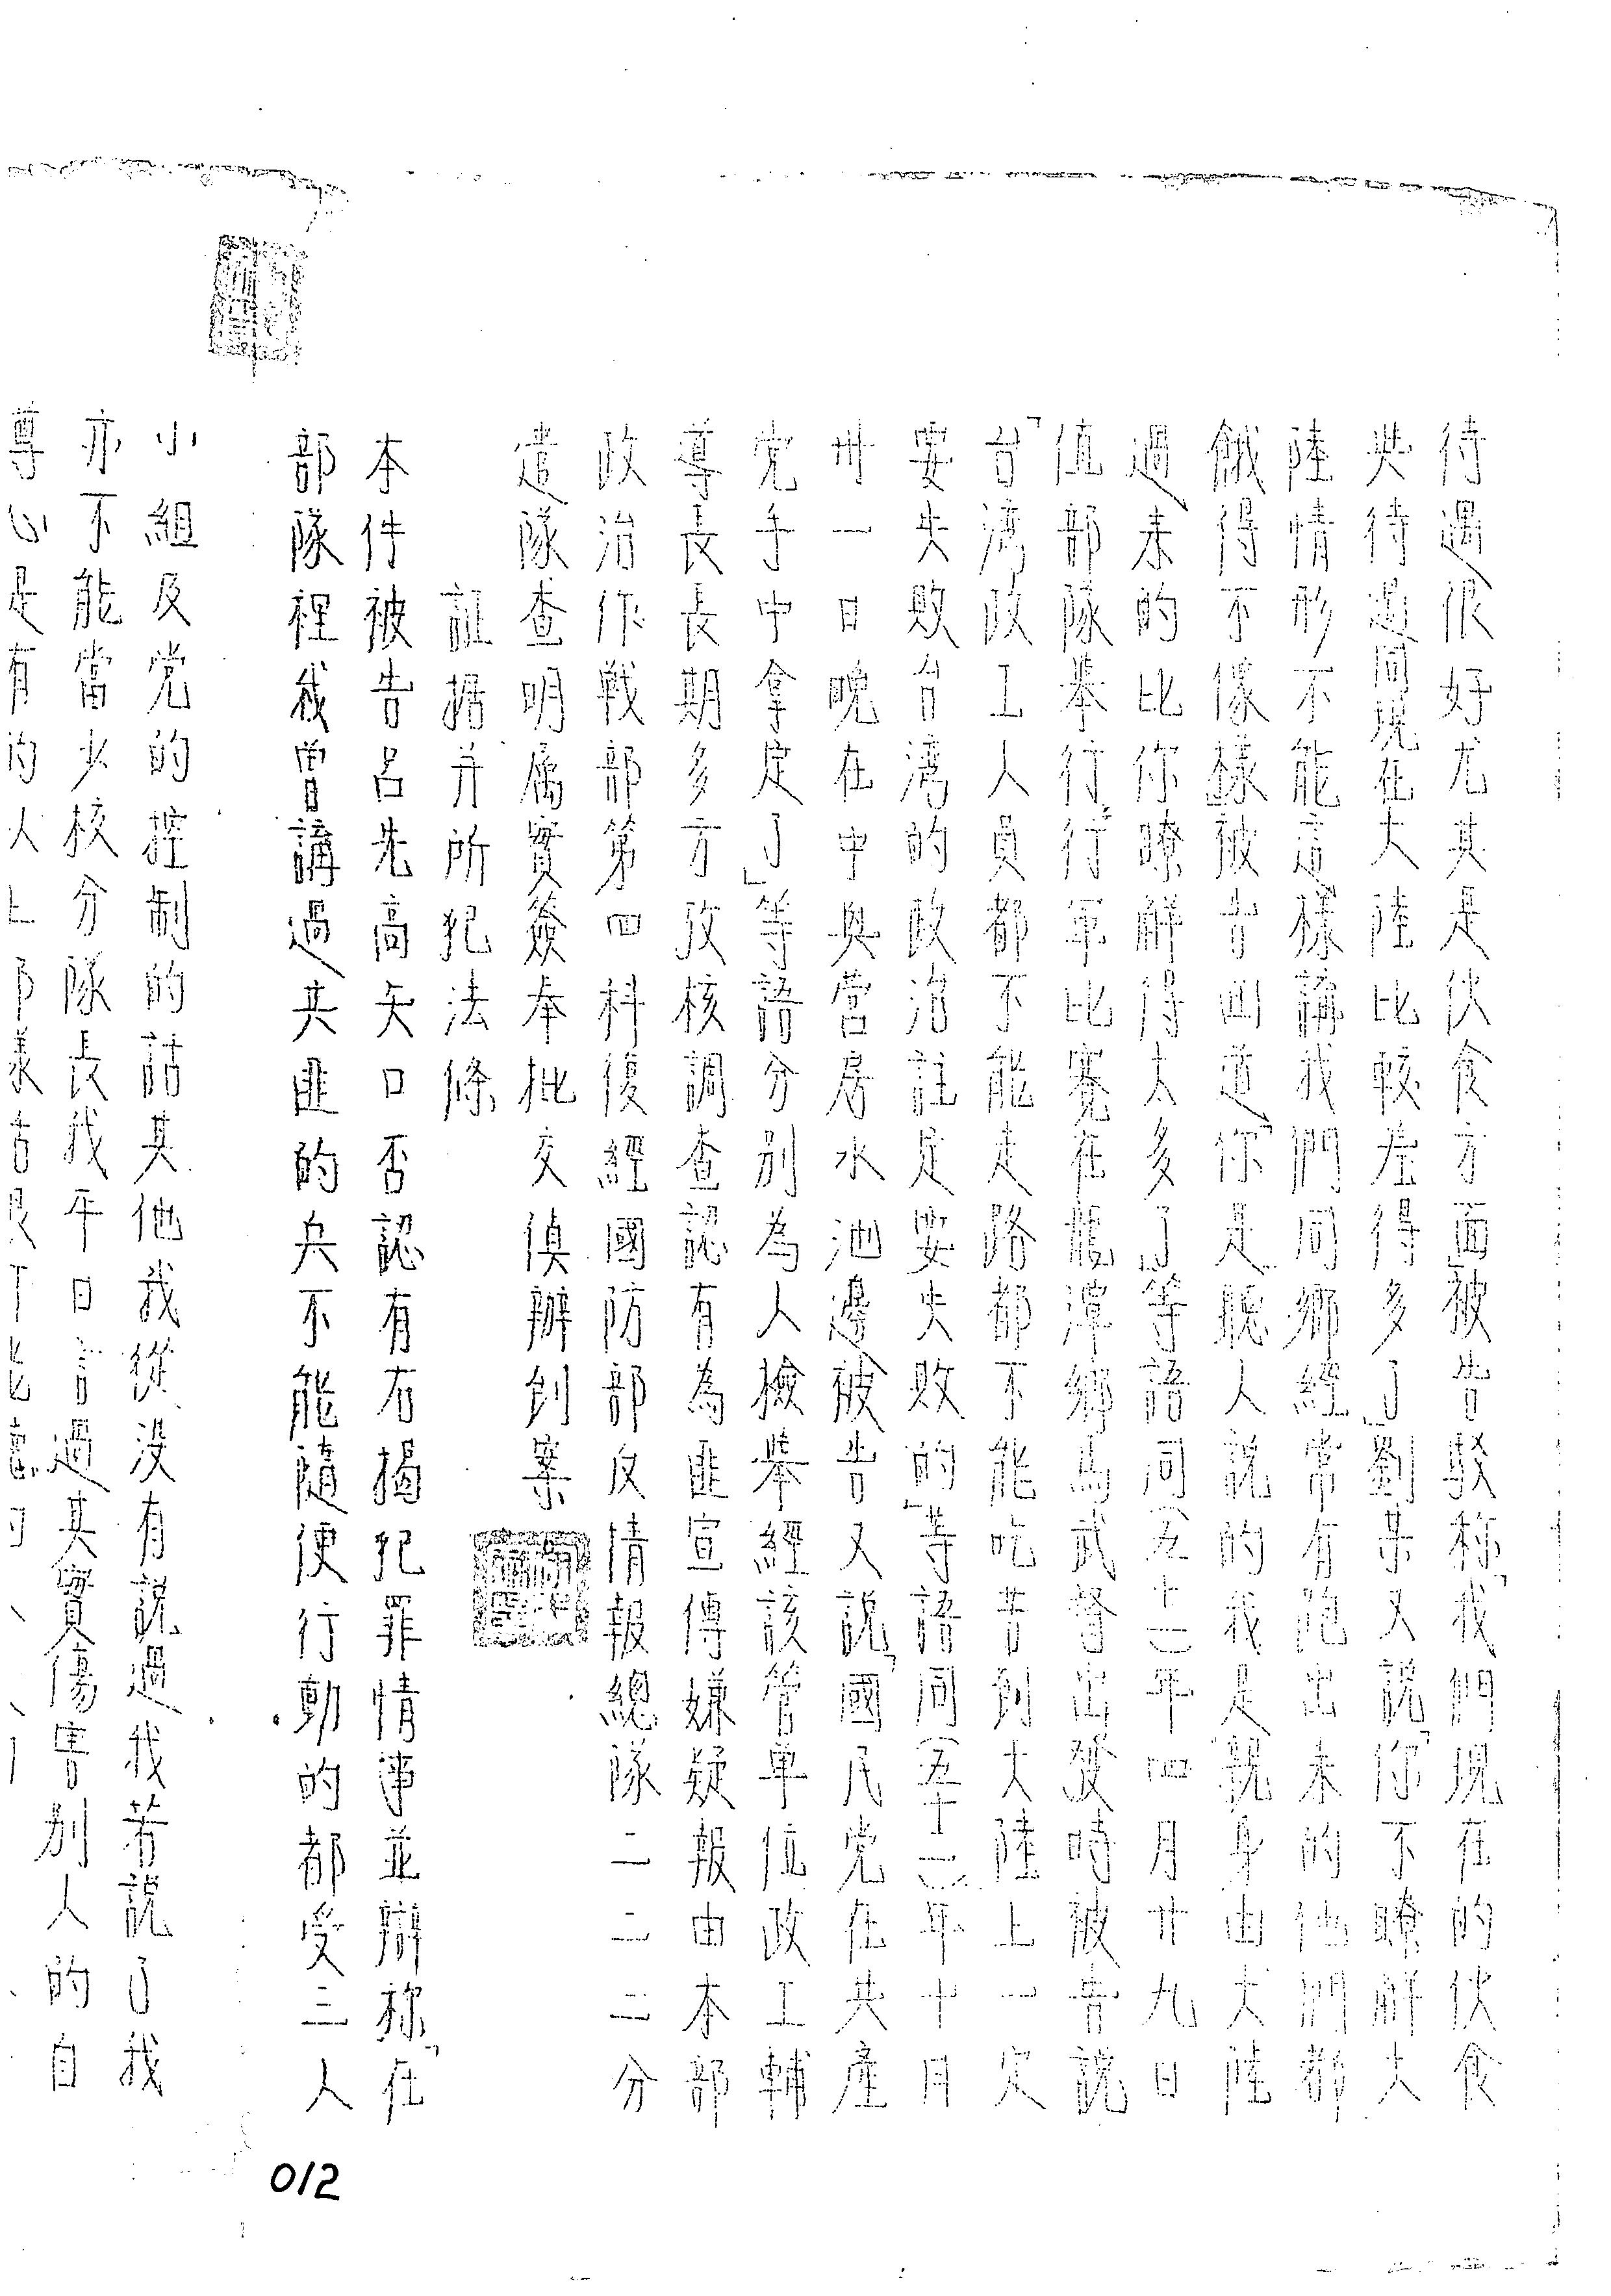 待遇很好尤其是伙食方面」被告駁称「我們現在的伙食
共待遇同現在大陸比較差得多了」劉某又說「你不瞭解大
陸情形不能這樣講我們同鄉經常有跑出來的他們都
餓得不像樣」被告曲道「你是聽人說的我是親身由大陸
過來的比你瞭解得太多了」等語同(五十二)年四月廿九日
值部隊舉行行軍比賽在龍潭鄉馬武督出發時被告說
「台湾政工人員都不能走路都不能吃苦創大陸上一定
要失敗台湾的政治註定要失敗的」等語同(五十二)年十月
卅一日晚在中興营房水池邊被告又說「國民党在共產
党手中拿定了」等語分別為人檢舉經該管单位政工輔
導長長期多方攷核調查認有為匪宣傳嫌疑報由本部
政治作戰部第四科復經國防部反情報總隊二二二分
遣隊查明属實簽奉批交偵辦到案
証据并所犯法條
本件被告呂先高矢口否認有右揭犯罪情事並辯称「在
部隊裡我曾講過共匪的兵不能隨便行動的都受三人
小組及党的控制的話其他我從没有說過我若說了我
亦不能當少校分隊長我平日言過其實傷害别人的自
尊心是有的
012